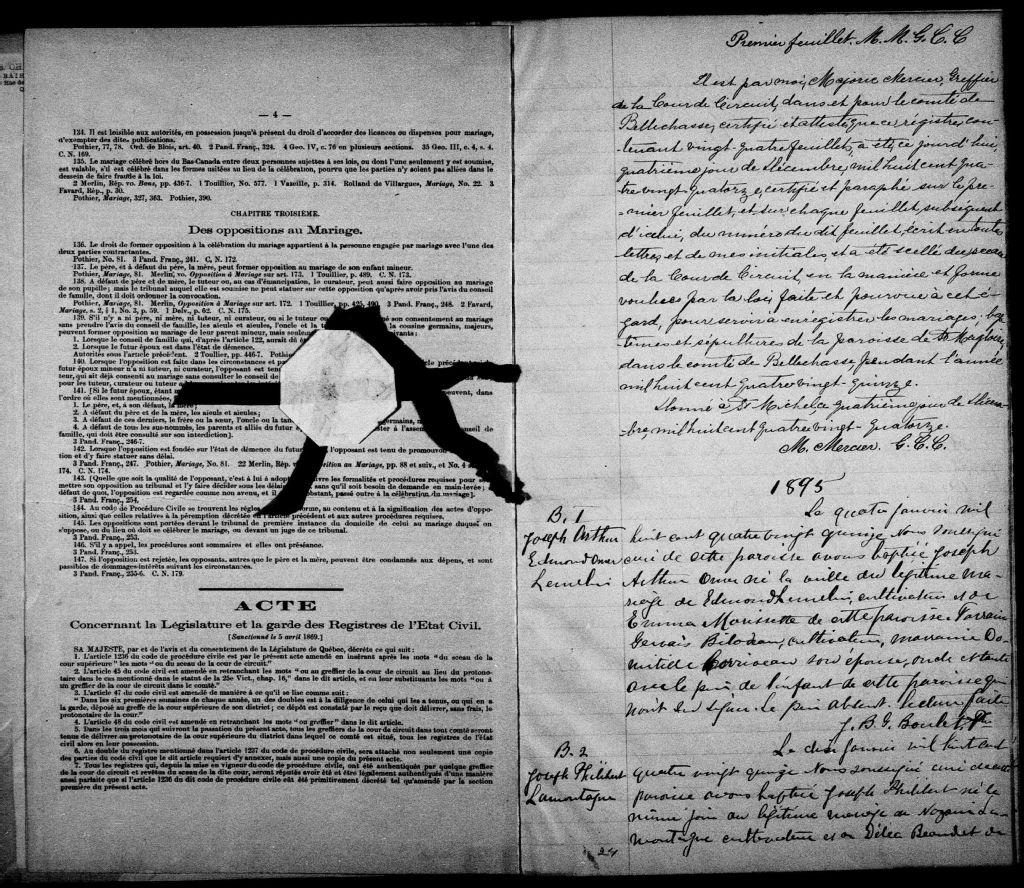 — 4 —
134. Il est loisible aux autorités, en possession jusqu'à présent du droit d'accorder des licences ou dispenses pour mariage,
d'exempter des dites publications.
Pothier, 77, 78. Ord. de Blois, art. 40. 2 Pand. Franç., 324. 4 Geo. IV, c. 76 en plusieurs sections. 35 Geo. III, c. 4, s. 4.
C. N. 169.
135. Le mariage célébré hors du Bas-Canada entre deux personnes sujettes à ses lois, ou dont l'une seulement y est soumise,
est valable, s'il est célébré dans les formes usitées au lieu de la célébration, pourvu que les parties n'y soient pas allées dans le
dessein de faire fraude à la loi.
2 Merlin, Rép. vo. Bans, pp. 436-7. 1 Touillier, No. 577. 1 Vazeille, p. 314. Rolland de Villargues, Mariage, No. 22. 3
Favard, Rép., p. 30.
Pothier, Mariage, 327, 363. Pothier, 390.
CHAPITRE TROISIÈME.
Des oppositions au Mariage.
136. Le droit de former opposition à la célébration du mariage appartient à la personne engagée par mariage avec l'une des
deux parties contractantes.
Pothier, No. 81. 3 Pand. Franç., 241. C. N. 172.
137. Le père, et à défaut du père, la mère, peut former opposition au mariage de son enfant mineur.
Pothier, Mariage, 81. Merlin, vo. Opposition à Mariage sur art. 173. 1 Touillier, p. 489. C. N. 173.
138. A défaut de père et de mère, le tuteur ou, au cas d'émancipation, le curateur, peut aussi faire opposition au mariage
de son pupille; mais le tribunal auquel elle est soumise ne peut statuer sur cette opposition qu'après avoir pris l'avis du conseil
de famille, dont il doit ordonner la convocation.
Pothier, Mariage, 81. Merlin, Opposition à Mariage sur art. 172. 1 Touillier, pp. 425, 490. 3 Pand. Franç., 248. 2 Favard,
Mariage, s. 2, § 1, No. 3, p. 59. 1 Delv., p. 62. C. N. 175.
139. S'il n'y a ni père, ni mère, ni tuteur, ni curateur, ou si le tuteur ou son consentement au mariage
sans prendre l'avis du conseil de famille, les aïeuls et aïeules, l'oncle et la la cousine germains, majeurs,
peuvent former opposition au mariage de leur parent mineur, mais seulement vivants:
1. Lorsque le conseil de famille qui, d'après l'article 122, aurait dû
2. Lorsque le futur époux est dans l'état de démence.
Autorités sous l'article précédent. 2 Toullier, pp. 446-7. Pothier
140. Lorsque l'opposition est faite dans les circonstances et par le précédent
futur époux mineur n'a ni tuteur, ni curateur, l'opposant est tenu
teur, qui ait déjà consenti au mariage sans consulter le conseil de
pour les tuteur, curateur ou tuteur
141. [Si le futur époux, étant peuvent, dans
l'ordre où elles sont mentionnées,
1. Le père, et, à son défaut, la mère;
2. A défaut du père et de la mère, les aïeuls et aïeules;
3. A défaut de ces derniers, le frère ou la sœur, l'oncle ou la germains,
4. A défaut de tous les sus-nommés, les parents et alliés du futur conseil de
famille, qui doit être consulté sur son interdiction].
3 Pand. Franç., 246-7.
142. Lorsque l'opposition est fondée sur l'état de démence du futur l'opposant est tenu de promouvoir
tion et d'y faire statuer sans délai.
3 Pand. Franç., 247. Pothier, Mariage, No. 81. 22 Merlin, Rép. vo. Opposition au Mariage, pp. 88 et suiv., et No. 4
174. C. N. 174.
143. [Quelle que soit la qualité de l'opposant, c'est à lui à les formalités et procédures requises pour
mettre son opposition au tribunal et l'y faire décider sous les délais sans qu'il soit besoin de demande en main-levée;
défaut de quoi, l'opposition est regardée comme non avenue, et il est passé outre à la célébration du mariage].
3 Pand. Franç., 254.
144. Au code de Procédure Civile se trouvent les règles forme, au contenu et à la signification des actes d'oppo-
sition, ainsi que celles relatives à la péremption décrétée en l'article précédent et aux autres procédures requises.
145. Les oppositions sont portées devant le tribunal de première instance du domicile de celui au mariage duquel on
s'oppose, ou du lieu où doit se célébrer le mariage, ou devant un juge de ce tribunal.
3 Pand. Franç., 253.
146. S'il y a appel, les procédures sont sommaires et elles ont préséance.
3 Pand. Franç., 253.
147. Si l'opposition est rejetée, les opposants, autres que le père et la mère, peuvent être condamnés aux dépens, et sont
passibles de dommages-intérêts suivant les circonstances.
3 Pand. Franç., 255-6. C. N. 179.
ACTE
Concernant la Législature et la garde des Registres de l'Etat Civil.
[Sanctionné le 5 avril 1869.]
SA MAJESTÉ, par et de l'avis et du consentement de la Législature de Québec, décrète ce qui suit:
1. L'article 1236 du code de procédure civil est par le présent acte amendé en insérant après les mots "du sceau de la
cour supérieure" les mots "ou du sceau de la cour de circuit."
2. L'article 45 du code civil est amendé en retranchant les mots "ou au greffier de la cour de circuit au lieu du protono-
taire dans le cas mentionné dans le statut de la 25e Vict., chap. 16," dans le dit article, et en leur substituant les mots "ou à
un greffier de la cour de circuit dans le comté."
3. L'article 47 du code civil est amendé de manière à ce qu'il se lise comme suit:
"Dans les six premières semaines de chaque année, un des doubles est à la diligence de celui qui les a tenus, ou qui en a
la garde, déposé au greffe de la cour supérieure de son district; ce dépôt est constaté par le reçu que doit délivrer, sans frais, le
protonotaire de la cour."
4. L'article 48 du code civil est amendé en retranchant les mots "ou greffier" dans le dit article.
5. Dans les trois mois qui suivront la passation du présent acte, tous les greffiers de la cour de circuit dans tout comté seront
tenus de délivrer au protonotaire de la cour supérieure du district dans lequel ce comté est situé, tous les registres de l'état
civil alors en leur possession.
6. Au double du registre mentionné dans l'article 1237 du code de procédure civile, sera attaché non seulement une copie
des parties du code civil que le dit article requiert d'y annexer, mais aussi une copie du présent acte.
7. Tous les registres qui, depuis la mise en vigueur du code de procédure civile, ont été authentiqués par quelque greffier
de la cour de circuit et revêtus du sceau de la dite cour, seront réputés avoir été et être légalement authentiqués d'une manière
aussi parfaite que si l'article 1236 du dit code de procédure civile eût été primitivement décrété tel qu'amendé par la section
première du présent acte.
Premier feuillet. M. M. G. C. C
Il est par moi, Majoric Mercier, Greffier
de la Cour de Circuit, dans et pour le comté de
Bellechasse, certifié et attesté que ce registre, con-
tenant vingt-quatre feuillets, a été, ce jourd'hui,
quatrième jour de Décembre, mil huit cent qua-
tre vingt-quatorze, certifié et paraphé sur le pre-
-mier feuillet, et sur chaque feuillet subséquent
d'icelui, du numéro du dit feuillet, écrit en toutes
lettres, et de mes initiales, et a été scellé du sceau
de la Cour de Circuit, en la manière et forme
voulues par la loi, faite et pourvue à cet é-
gard, pour servir à enregistrer les mariages, bap-
têmes et sépultures de la paroisse de St Magloire,
dans le comté de Bellechasse, pendant l'année
mil huit cent quatre vingt-quinze.
Donné à St Michel ce quatrième jour de Décem-
-bre mil huit cent quatre vingt-quatorze.
M. Mercier. G. C. C.
1895
B. 1
Joseph Arthur
Edmond Omer
Lemelin
Le quatre janvier mil
huit cent quatre vingt quinze Nous soussigné
curé de cette paroisse avons baptisé Joseph
Arthur Omer né la veille du légitime ma-
riage de Edmond Lemelin, cultivateur et de
Emma Morissette de cette paroisse. Parrain
Gervais Bilodeau, cultivateur, marraine Do-
mitilde Corriveau son épouse, oncle et tante
avec le père de l'enfant de cette paroisse qui
n'ont su signer. Le père absent. Lecture faite
J. B. G. Boulet Ptre
B. 2
Joseph Philibert
Lamontagne
Le dix janvier mil huit cent
quatre vingt quinze Nous soussigné curé de cette
paroisse avons baptisé Joseph Philibert né le
même jour du légitime mariage de Nazaire La-
montagne cultivateur et de Délia Beaudet de
24